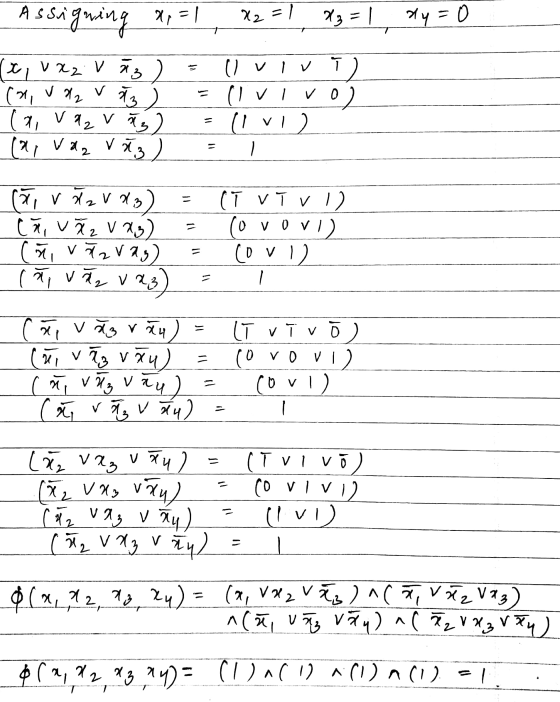 Assigning x₁=1, x₂=1, x₃=1, x₄=0
(x₁ ∨ x₂ ∨ x̄₃) = (1 ∨ 1 ∨ 1̄)
(x₁ ∨ x₂ ∨ x̄₃) = (1 ∨ 1 ∨ 0)
(x₁ ∨ x₂ ∨ x̄₃) = (1 ∨ 1)
(x₁ ∨ x₂ ∨ x̄₃) = 1
(x̄₁ ∨ x̄₂ ∨ x₃) = (1̄ ∨ 1̄ ∨ 1)
(x̄₁ ∨ x̄₂ ∨ x₃) = (0 ∨ 0 ∨ 1)
(x̄₁ ∨ x̄₂ ∨ x₃) = (0 ∨ 1)
(x̄₁ ∨ x̄₂ ∨ x₃) = 1
(x̄₁ ∨ x̄₃ ∨ x̄₄) = (1̄ ∨ 1̄ ∨ 0̄)
(x̄₁ ∨ x̄₃ ∨ x̄₄) = (0 ∨ 0 ∨ 1)
(x̄₁ ∨ x̄₃ ∨ x̄₄) = (0 ∨ 1)
(x̄₁ ∨ x̄₃ ∨ x̄₄) = 1
(x̄₂ ∨ x₃ ∨ x̄₄) = (1̄ ∨ 1 ∨ 0̄)
(x̄₂ ∨ x₃ ∨ x̄₄) = (0 ∨ 1 ∨ 1)
(x̄₂ ∨ x₃ ∨ x̄₄) = (1 ∨ 1)
(x̄₂ ∨ x₃ ∨ x̄₄) = 1
ϕ(x₁, x₂, x₃, x₄) = (x₁ ∨ x₂ ∨ x̄₃) ∧ (x̄₁ ∨ x̄₂ ∨ x₃)
∧ (x̄₁ ∨ x̄₃ ∨ x̄₄) ∧ (x̄₂ ∨ x₃ ∨ x̄₄)
ϕ(x₁, x₂, x₃, x₄) = (1) ∧ (1) ∧ (1) ∧ (1) = 1.